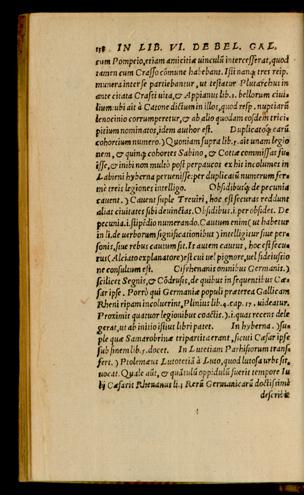 138 IN LIB. VI. DE BEL. GAL.
cum Pompeio, etiam amicitiæ vinculũ intercesserat, quod
tamen cum Crasso cõmune habebant. Iisii nanq; tres reip.
munera inter se partiebantur, ut testatur Plutarchus in
ante citata Crassi vita, & Appianus lib. 2. bellorum civi
lium: ubi ait à Catone dictum in illos, quod resp. nuptiarũ
lenocinio corrumperetur, & ab alio quodam eosdem trici-
pitium nominatos, idem author est. Duplicatoq́; carũ
cohortium numero.) Quoniam supra lib. 5. ait unam legio
nem, & quinq; cohortes Sabino, & Cottæ commissas fu
isse, & inibi non multò post perpaucos ex his incolumes in
Labieni hyberna pervenisse: per duplicatũ numerum fer
mè treis legiones intelligo. Obsidibusq́; de pecunia
cavent.) Cavent suple Treviri, hoc est securas reddunt
alias civitates sibi devinctas. Obsidibus. i. per obsides. De
pecunia. i. stipẽdio numerando. Cautum enim (ut habetur
in li. de verborum significationibus) intelligitur sive per
sonis, sive rebus cautum sit. Is autem cautus, hoc est secu
rus (Alciato explanatore) est cui vel pignore, vel fideiussio
ne consultum est. Cisrhenanis omnibus Germanis.)
scilicet Segnis, & Cõdrusis, de quibus in sequentibus Cæ-
sar ipse. Porrò qui Germaniæ populi præterea Gallicam
Rheni ripam incoluerint, Plinius lib. 4. cap. 17. videatur.
Proximis quatuor legionibus coactis.). i. quas recens dele
gerat, ut ab initio istius libri patet. In hyberna.) su-
ple quæ Samarobrinæ tripartita erant, sicuti Cæsar ipse
sub finem lib. 5. docet. In Lutetiam Parhisiorum trans
fert.) Ptolemæus Lutotetiã à Luto, quod lutosa urbs sit,
vocat. Quale aũt, & quãtulũ oppidulũ fuerit tempore Iu
lij Cæsaris Rhenanus li. 3. Rerũ Germanicarũ doctissimè
describit